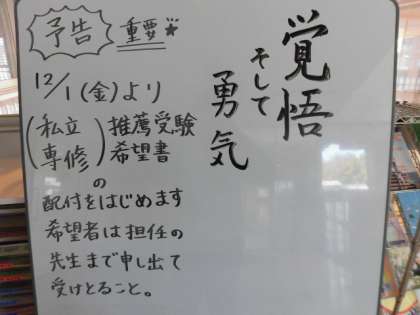 予告 重要
12/1(金)より
(私立 専修) 推薦受験希望書
の
配付をはじめます
希望者は担任の
先生まで申し出て
受けとること。
覚悟
そして
勇気